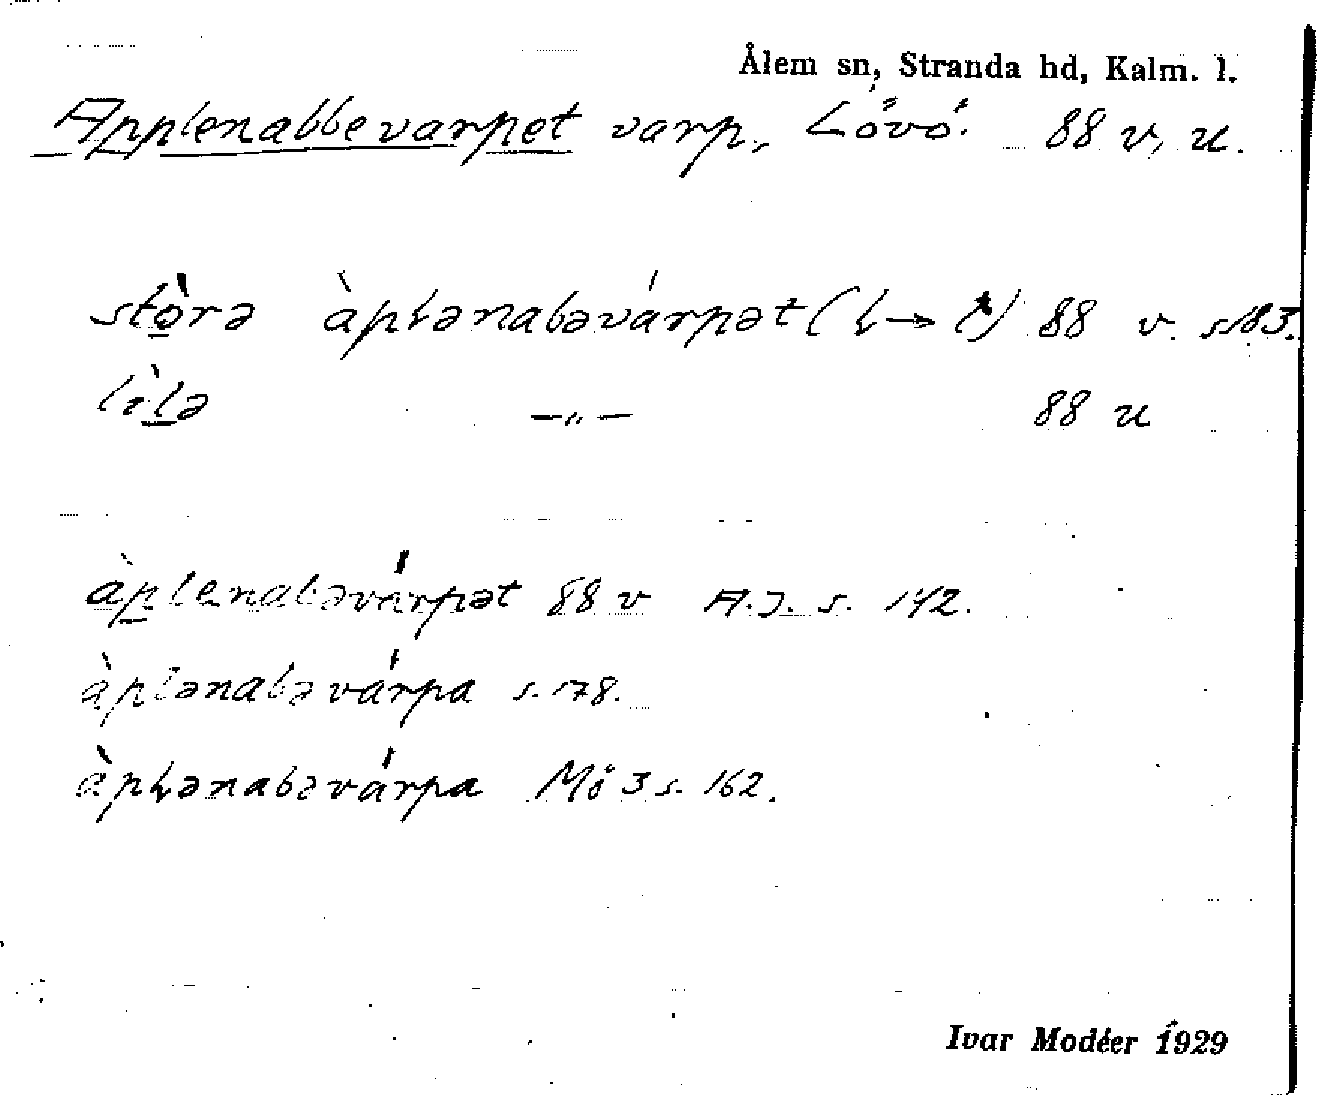 Ålem sn, Stranda hd, Kalm. l.
Applenabbevarpet varp, Lövö. 88 v, u.
stòrə àpɫənabəvárpət (ɫ → l) 88 v. s. 183.
lìlə —„— 88 u
àplenabəvárpət 88 v A.J. s. 142.
àplənabəvárpa s. 178.
àpɫənabəvárpa Mö 3 s. 162.
Ivar Modéer 1929